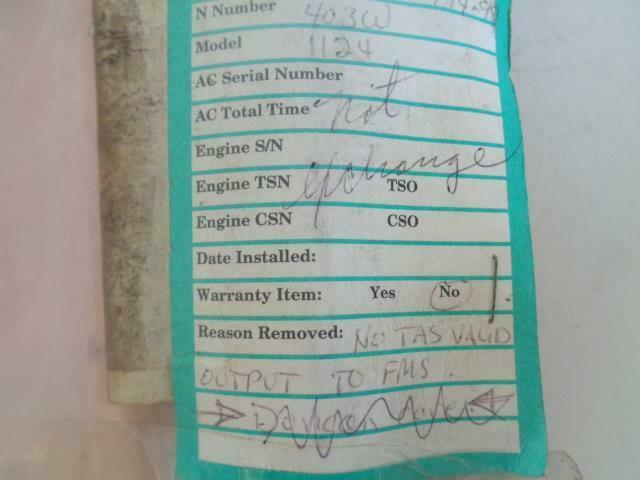 N Number 403W
Model 1124
AC Serial Number
AC Total Time not
Engine S/N
Engine TSN exchange TSO
Engine CSN CSO
Date Installed:
Warranty Item: Yes No
Reason Removed: NO TAS VALID
OUTPUT TO FMS.